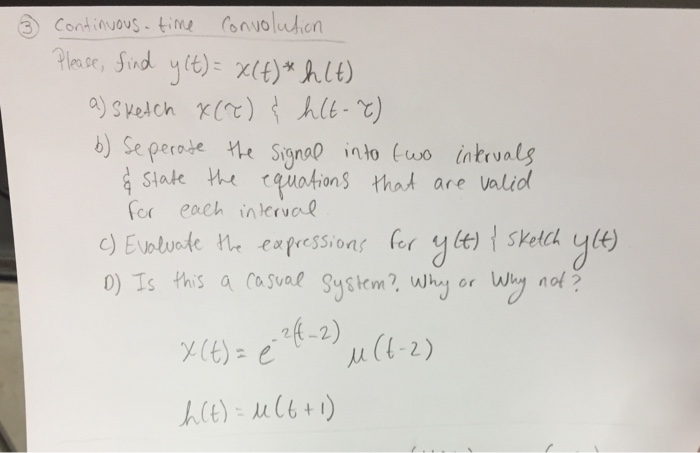 ③ Continuous-time Convolution
Please, find y(t) = x(t) * h(t)
a) Sketch x(τ) & h(t-τ)
b) Seperate the signal into two intervals
& state the equations that are valid
for each interval
c) Evaluate the expressions for y(t) & sketch y(t)
D) Is this a casual system?, Why or Why not?
x(t) = e^-2(t-2) μ(t-2)
h(t) = μ(t+1)